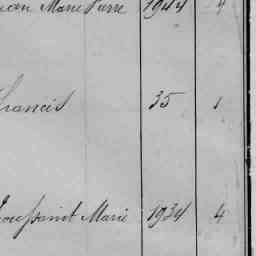 Jean Marie Pierre 1944 4
Francis 35 1
Toussaint Marie 1934 4